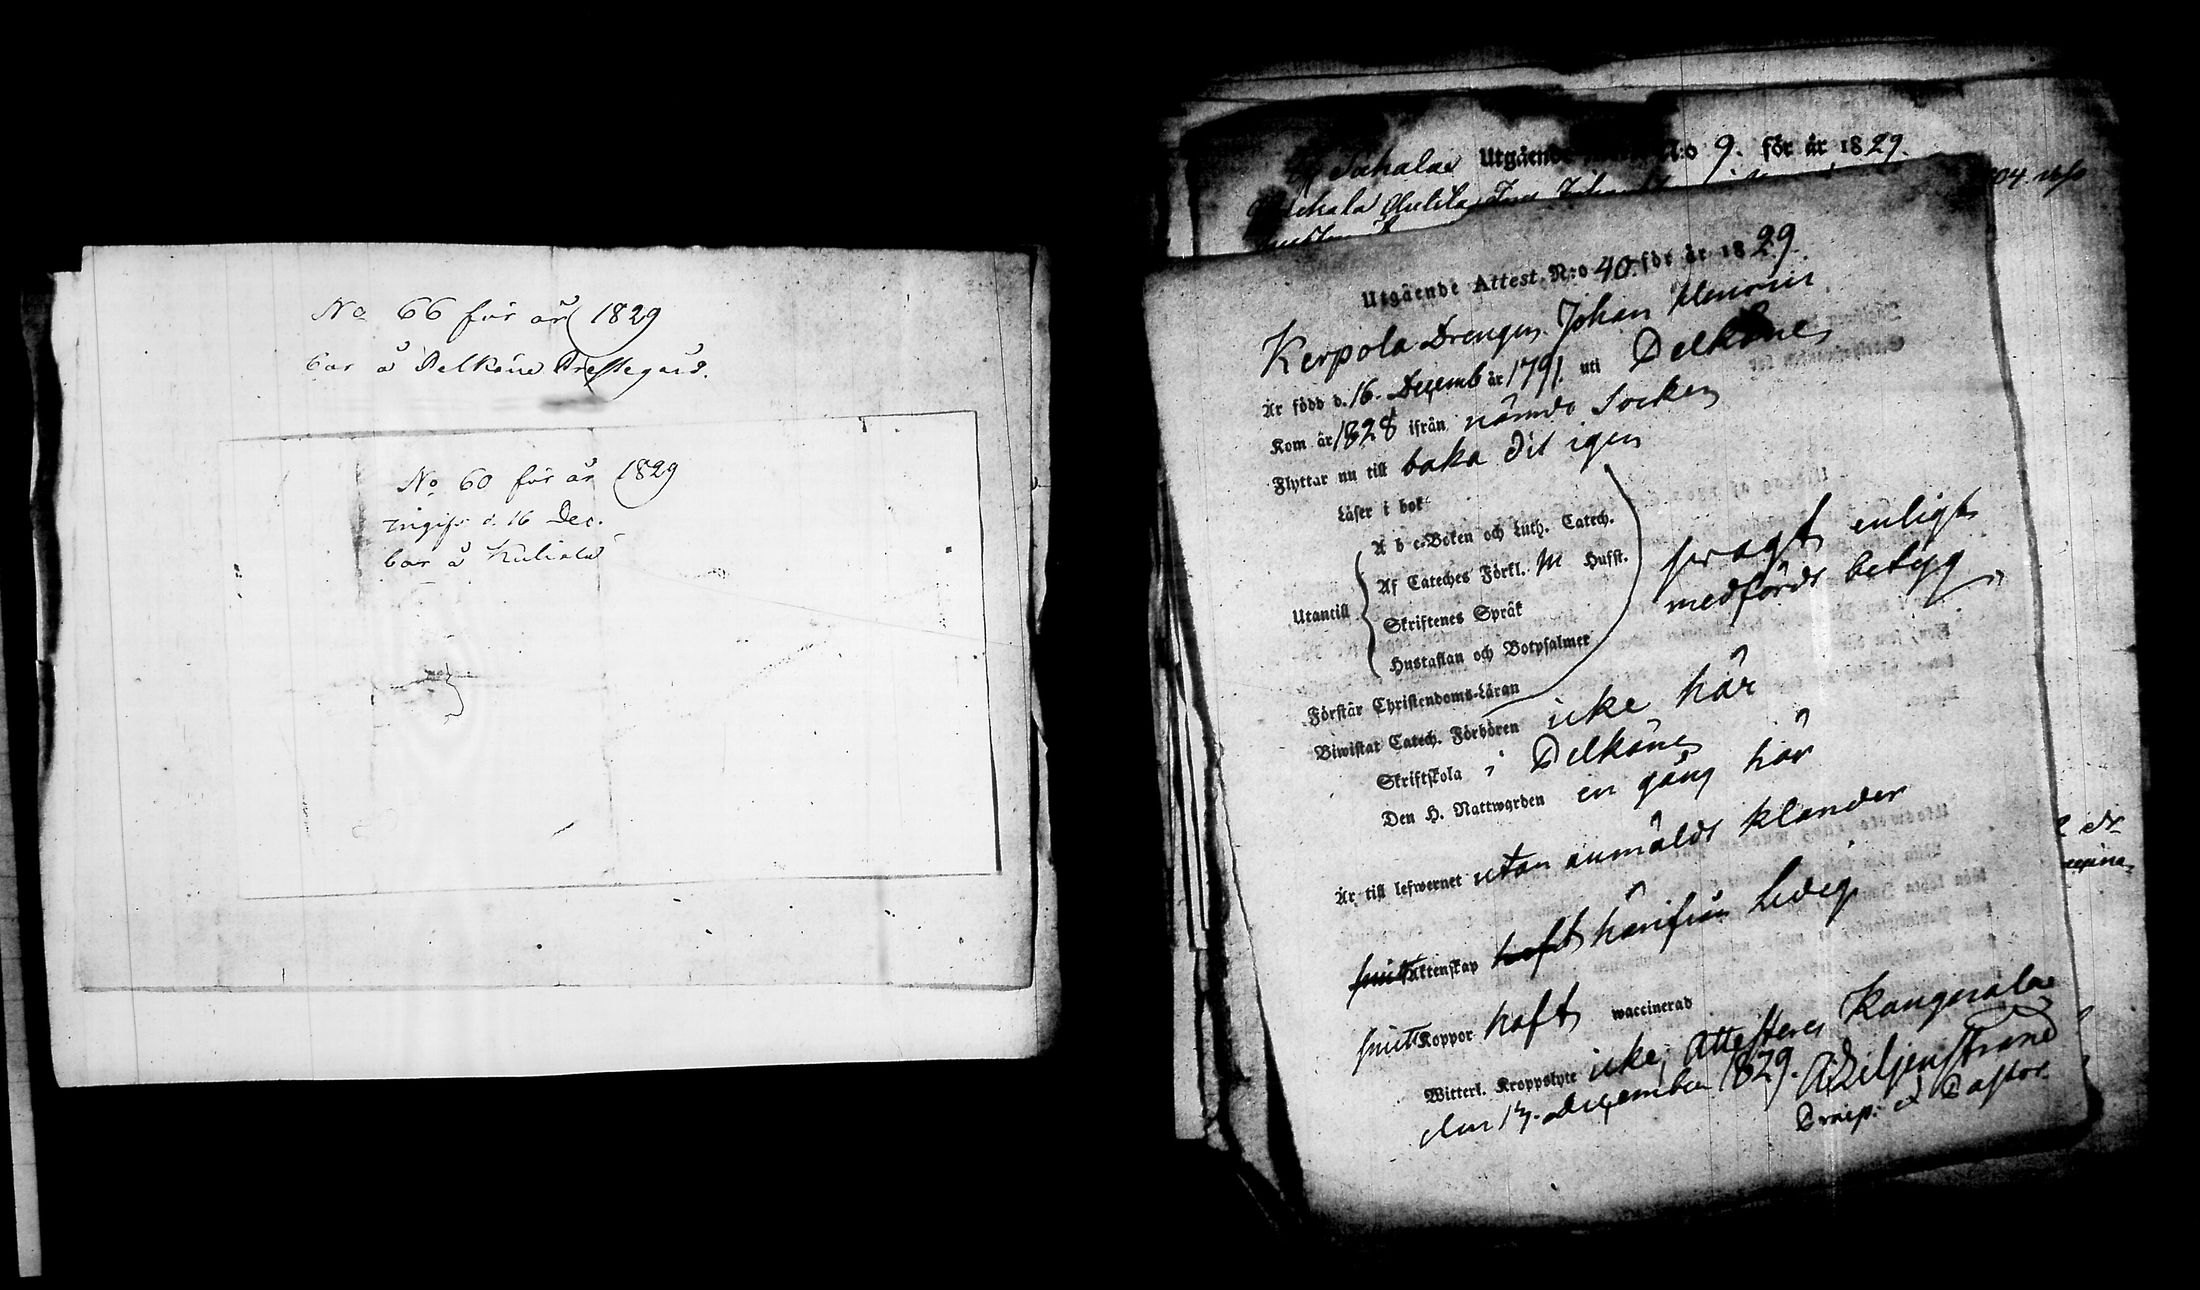 No 66 för år 1829
bor å Pelkäne Prestegård.
No 60 för år 1829
Ingifv. d. 16 Dec.
bor å Kuliala
Sahalax Utgående N:o 9. för år 1829.
Utgående Attest N:o 40. för år 1829.
Kerpola Drengen Johan
Är född d. 16. Decemb år 1791. uti Pelkäne
Kom år 1828 ifrån nämnde Socken
Flyttar nu till baka dit igen
Läser i bok
A b c-Boken och Luth. Catech.
Af Cateches Förkl. m Hufst.
Utantill
Skriftenes Språk
Hustaflan och Botpsalmer
Förstår Christendoms-Läran
svagt enligt
medförde betyg
Biwistat Catech. Förhören icke här
Skriftskola i Pelkäne
Den H. Nattwarden en gång här
Är till lefwernet utan anmäldt klander
Äktenskap haft härifrån Ledig
Koppor haft waccinerad
Witterl. Kroppslyte icke, Attesterar Kangasala
den 17. December 1829. A Liljenstrand
Præp. & Pastor